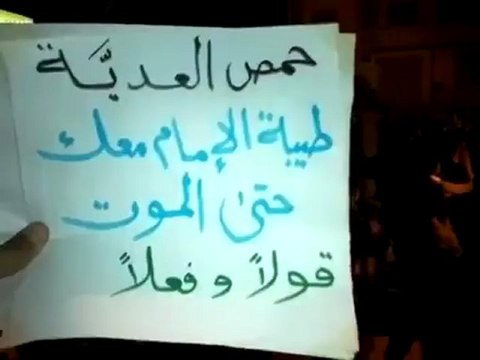 حمص العديَّة
طيبة الإمام معك
حتى الموت
قولاً و فعلاً